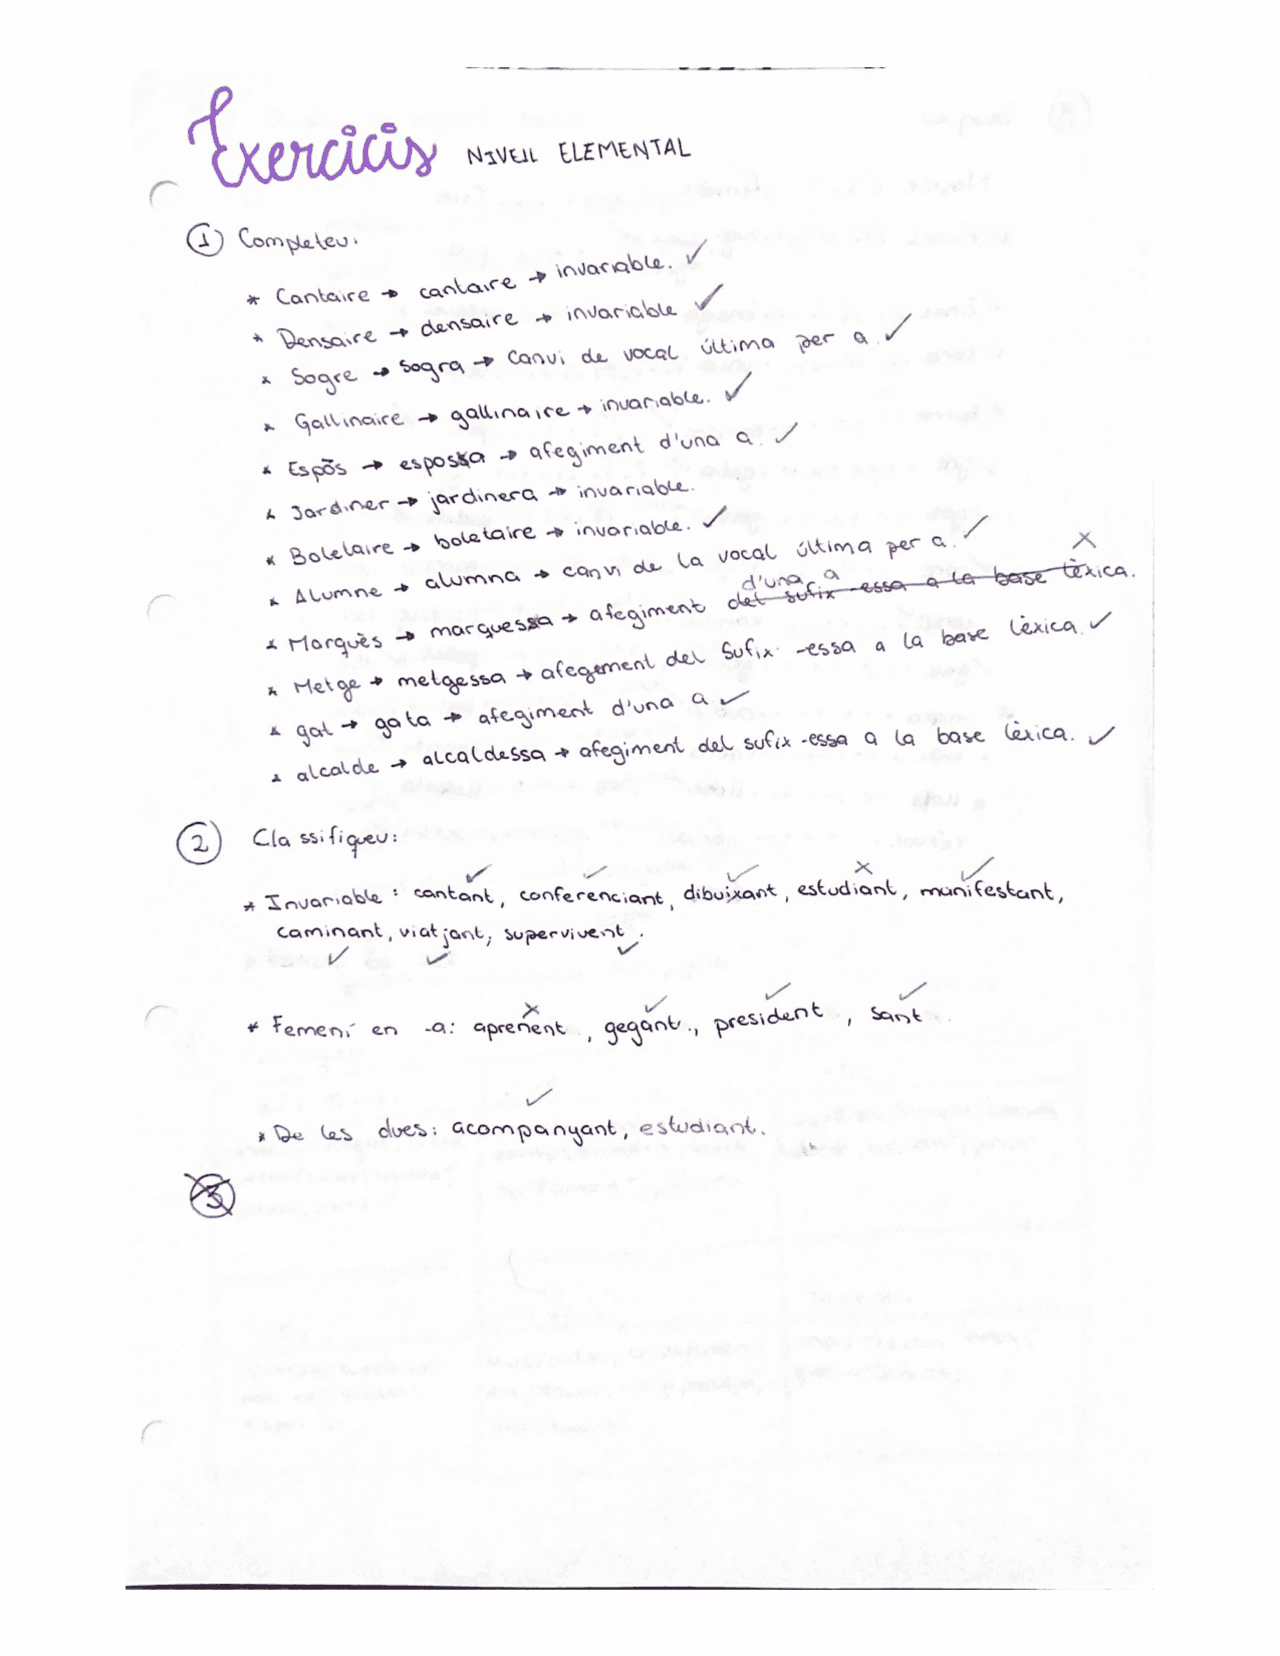 Exercicis NIVELL ELEMENTAL
1 Completeu:
* Cantaire → cantaire → invariable. ✓
* Densaire → densaire → invariable ✓
* Sogre → sogra → canvi de vocal última per a. ✓
* Gallinaire → gallinaire → invariable. ✓
* Espòs → espossa → afegiment d'una a. ✓
* Jardiner → jardinera → invariable.
* Boletaire → boletaire → invariable. ✓
* Alumne → alumna → canvi de la vocal última per a. ✓
* Marquès → marquessa → afegiment d'una a del sufix -essa a la base lèxica. ✗
* Metge → metgessa → afegement del sufix -essa a la base lèxica. ✓
* gat → gata → afegiment d'una a ✓
* alcalde → alcaldessa → afegiment del sufix -essa a la base lèxica. ✓
2 Classifiqueu:
* Invariable: cantant, conferenciant, dibuixant, estudiant, manifestant,
caminant, viatjant, supervivent.
* Femení en -a: aprenent, gegant., president, sant.
* De les dues: acompanyant, estudiant.
3